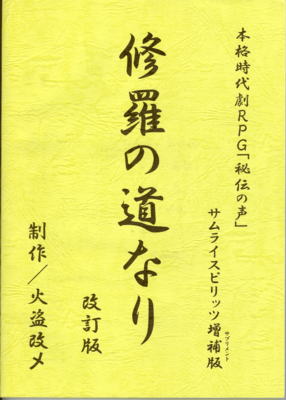 本格時代劇RPG「秘伝の声」
サムライスピリッツ増補版
サプリメント
修羅の道なり
改訂版
制作／火盗改メ